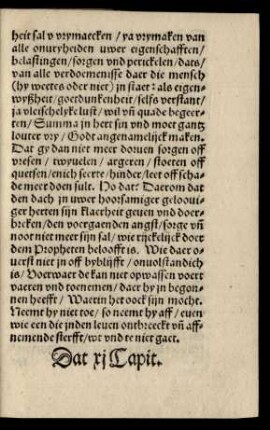 heit sal v vrymaecken / ya vrymaken van
alle onuryheiden uwer eigenschafften /
belastingen / sorgen vnd perickelen / dats /
van alle verdoemenisse daer die mensch
(hy weetes oder niet) jn staet: als eigen-
wyßheit / goetdunkenheit / selfs verstant /
ja vleischelyke lust / wil vñ quade begeer-
ten / Summa jn hert sijn vnd moet gantz
louter vry / Godt angenamelijck maken.
Dat gy dan niet meer doruen sorgen off
vresen / twyuelen / argeren / stoeten off
quetsen / enich seerte / hinder / leet off scha-
de meer doen sult. No dat: Daerom dat
den dach jn uwer hoorsamiger gelooui-
ger herten sijn klaerheit geuen vnd doer-
breken / den voergaenden angst / sorge vñ
noot niet meer sijn sal / wie rijckelijck doer
dem Propheten belooft is. Wie daer o-
uerst niet jn off byblijfft / onuolstandich
is / Voerwaer de kan niet opwassen voert
vaeren vnd toenemen / daer hy jn begon-
nen heefft / Waerin het oock sijn mocht.
Neemt hy niet toe / so neemt hy aff / euen
wie een die jnden leuen ontbreeckt vñ aff-
nemende sterfft / wt vnd te niet gaet.
Dat xj Capit.